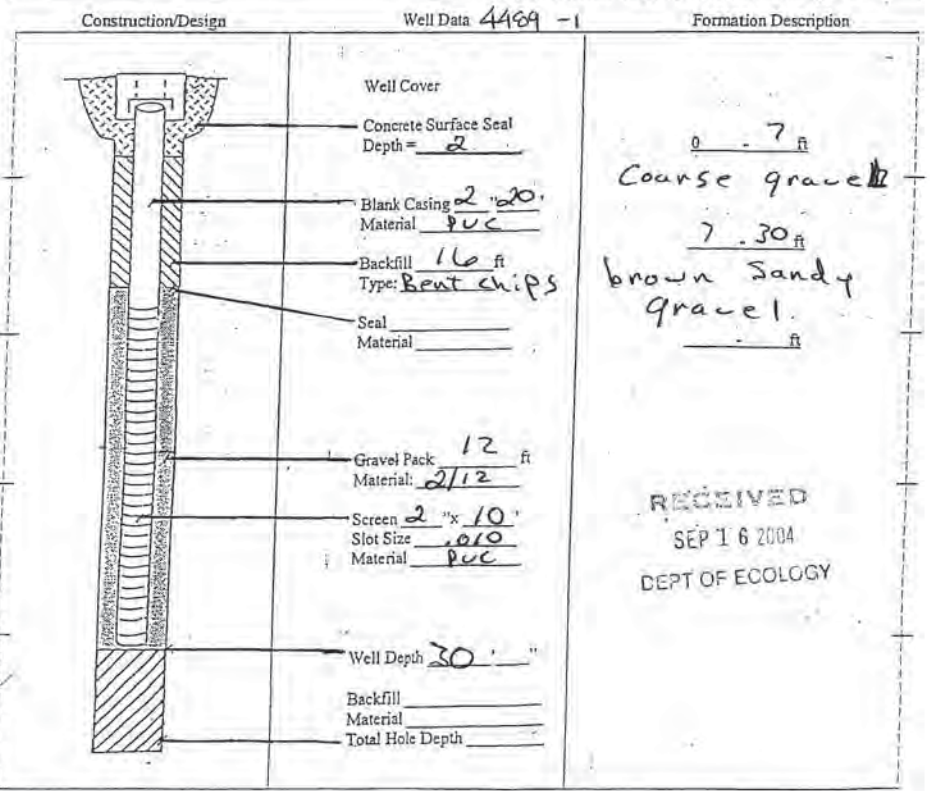 Construction/Design
Well Data 4489 -1
Formation Description
Well Cover
Concrete Surface Seal
Depth = 2
Blank Casing 2 "20'
Material PVC
Backfill 16 ft
Type: Bent chips
Seal
Material
Gravel Pack 12 ft
Material: 2/12
Screen 2 "x 10 '
Slot Size .010
Material PVC
Well Depth 30 ' "
Backfill
Material
Total Hole Depth
0 - 7 ft
Coarse gravel
7 - 30 ft
brown Sandy
gravel.
- ft
RECEIVED
SEP 16 2004
DEPT OF ECOLOGY